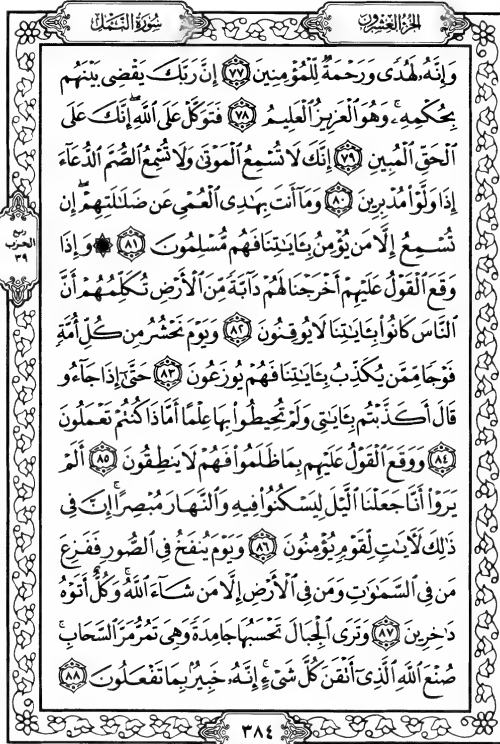 الجزء العشرون
سورة النمل
وَإِنَّهُۥ لَهُدًى وَرَحْمَةٌ لِّلْمُؤْمِنِينَ ٧٧ إِنَّ رَبَّكَ يَقْضِى بَيْنَهُم
بِحُكْمِهِۦ ۚ وَهُوَ ٱلْعَزِيزُ ٱلْعَلِيمُ ٧٨ فَتَوَكَّلْ عَلَى ٱللَّهِ ۖ إِنَّكَ عَلَى
ٱلْحَقِّ ٱلْمُبِينِ ٧٩ إِنَّكَ لَا تُسْمِعُ ٱلْمَوْتَىٰ وَلَا تُسْمِعُ ٱلصُّمَّ ٱلدُّعَآءَ
إِذَا وَلَّوْا۟ مُدْبِرِينَ ٨٠ وَمَآ أَنتَ بِهَـٰدِى ٱلْعُمْىِ عَن ضَلَـٰلَتِهِمْ ۖ إِن
تُسْمِعُ إِلَّا مَن يُؤْمِنُ بِـَٔايَـٰتِنَا فَهُم مُّسْلِمُونَ ٨١ ۞ وَإِذَا
وَقَعَ ٱلْقَوْلُ عَلَيْهِمْ أَخْرَجْنَا لَهُمْ دَآبَّةً مِّنَ ٱلْأَرْضِ تُكَلِّمُهُمْ أَنَّ
ٱلنَّاسَ كَانُوا۟ بِـَٔايَـٰتِنَا لَا يُوقِنُونَ ٨٢ وَيَوْمَ نَحْشُرُ مِن كُلِّ أُمَّةٍ
فَوْجًا مِّمَّن يُكَذِّبُ بِـَٔايَـٰتِنَا فَهُمْ يُوزَعُونَ ٨٣ حَتَّىٰٓ إِذَا جَآءُو
قَالَ أَكَذَّبْتُم بِـَٔايَـٰتِى وَلَمْ تُحِيطُوا۟ بِهَا عِلْمًا أَمَّاذَا كُنتُمْ تَعْمَلُونَ
٨٤ وَوَقَعَ ٱلْقَوْلُ عَلَيْهِم بِمَا ظَلَمُوا۟ فَهُمْ لَا يَنطِقُونَ ٨٥ أَلَمْ
يَرَوْا۟ أَنَّا جَعَلْنَا ٱلَّيْلَ لِيَسْكُنُوا۟ فِيهِ وَٱلنَّهَارَ مُبْصِرًا ۚ إِنَّ فِى
ذَٰلِكَ لَـَٔايَـٰتٍ لِّقَوْمٍ يُؤْمِنُونَ ٨٦ وَيَوْمَ يُنفَخُ فِى ٱلصُّورِ فَفَزِعَ
مَن فِى ٱلسَّمَـٰوَٰتِ وَمَن فِى ٱلْأَرْضِ إِلَّا مَن شَآءَ ٱللَّهُ ۚ وَكُلٌّ أَتَوْهُ
دَٰخِرِينَ ٨٧ وَتَرَى ٱلْجِبَالَ تَحْسَبُهَا جَامِدَةً وَهِىَ تَمُرُّ مَرَّ ٱلسَّحَابِ ۚ
صُنْعَ ٱللَّهِ ٱلَّذِىٓ أَتْقَنَ كُلَّ شَىْءٍ ۚ إِنَّهُۥ خَبِيرٌۢ بِمَا تَفْعَلُونَ ٨٨
ربع
الحزب
٣٩
٣٨٤